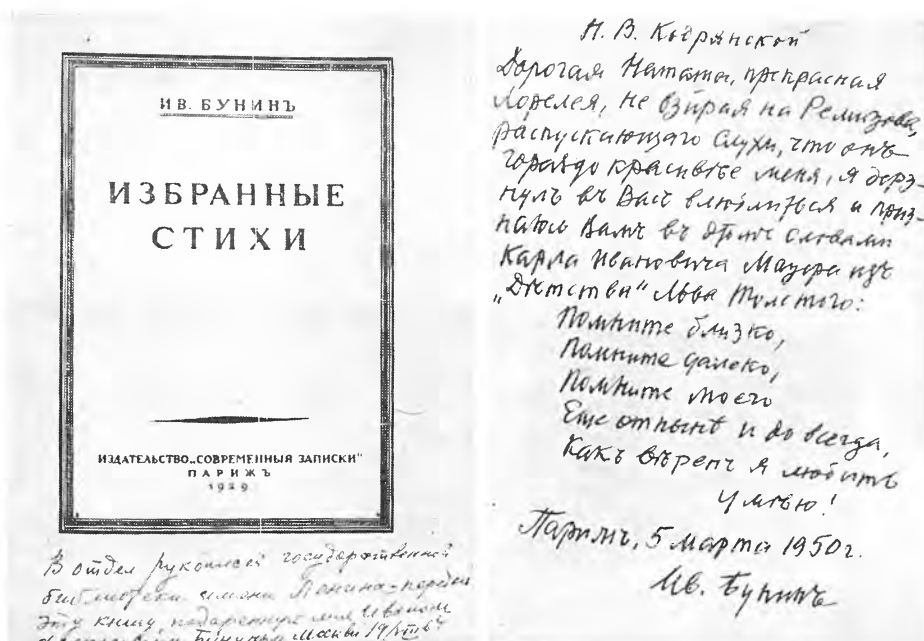 ИВ. БУНИНЪ
ИЗБРАННЫЕ
СТИХИ
ИЗДАТЕЛЬСТВО „СОВРЕМЕННЫЯ ЗАПИСКИ"
ПАРИЖЪ
1929
В отдел рукописей государственной
библиотеки имени Ленина передаю
эту книгу, подаренную мне Иваном
Буниным Москва
Н. В. Кодрянской
Дорогая Наташа, прекрасная
Лорелея, не взирая на Ремизова,
распускающаго слухи, что онъ
гораздо красивѣе меня, я дерз-
нулъ въ Васъ влюбиться и приз-
наюсь Вамъ въ этомъ словами
Карла Ивановича Мауера изъ
„Дѣтства" Льва Толстого:
Помните близко,
Помните далеко,
Помните моего
Еще отнынѣ и до всегда,
Какъ вѣренъ я любить
умѣю!
Парижъ, 5 марта 1950 г.
Ив. Бунинъ